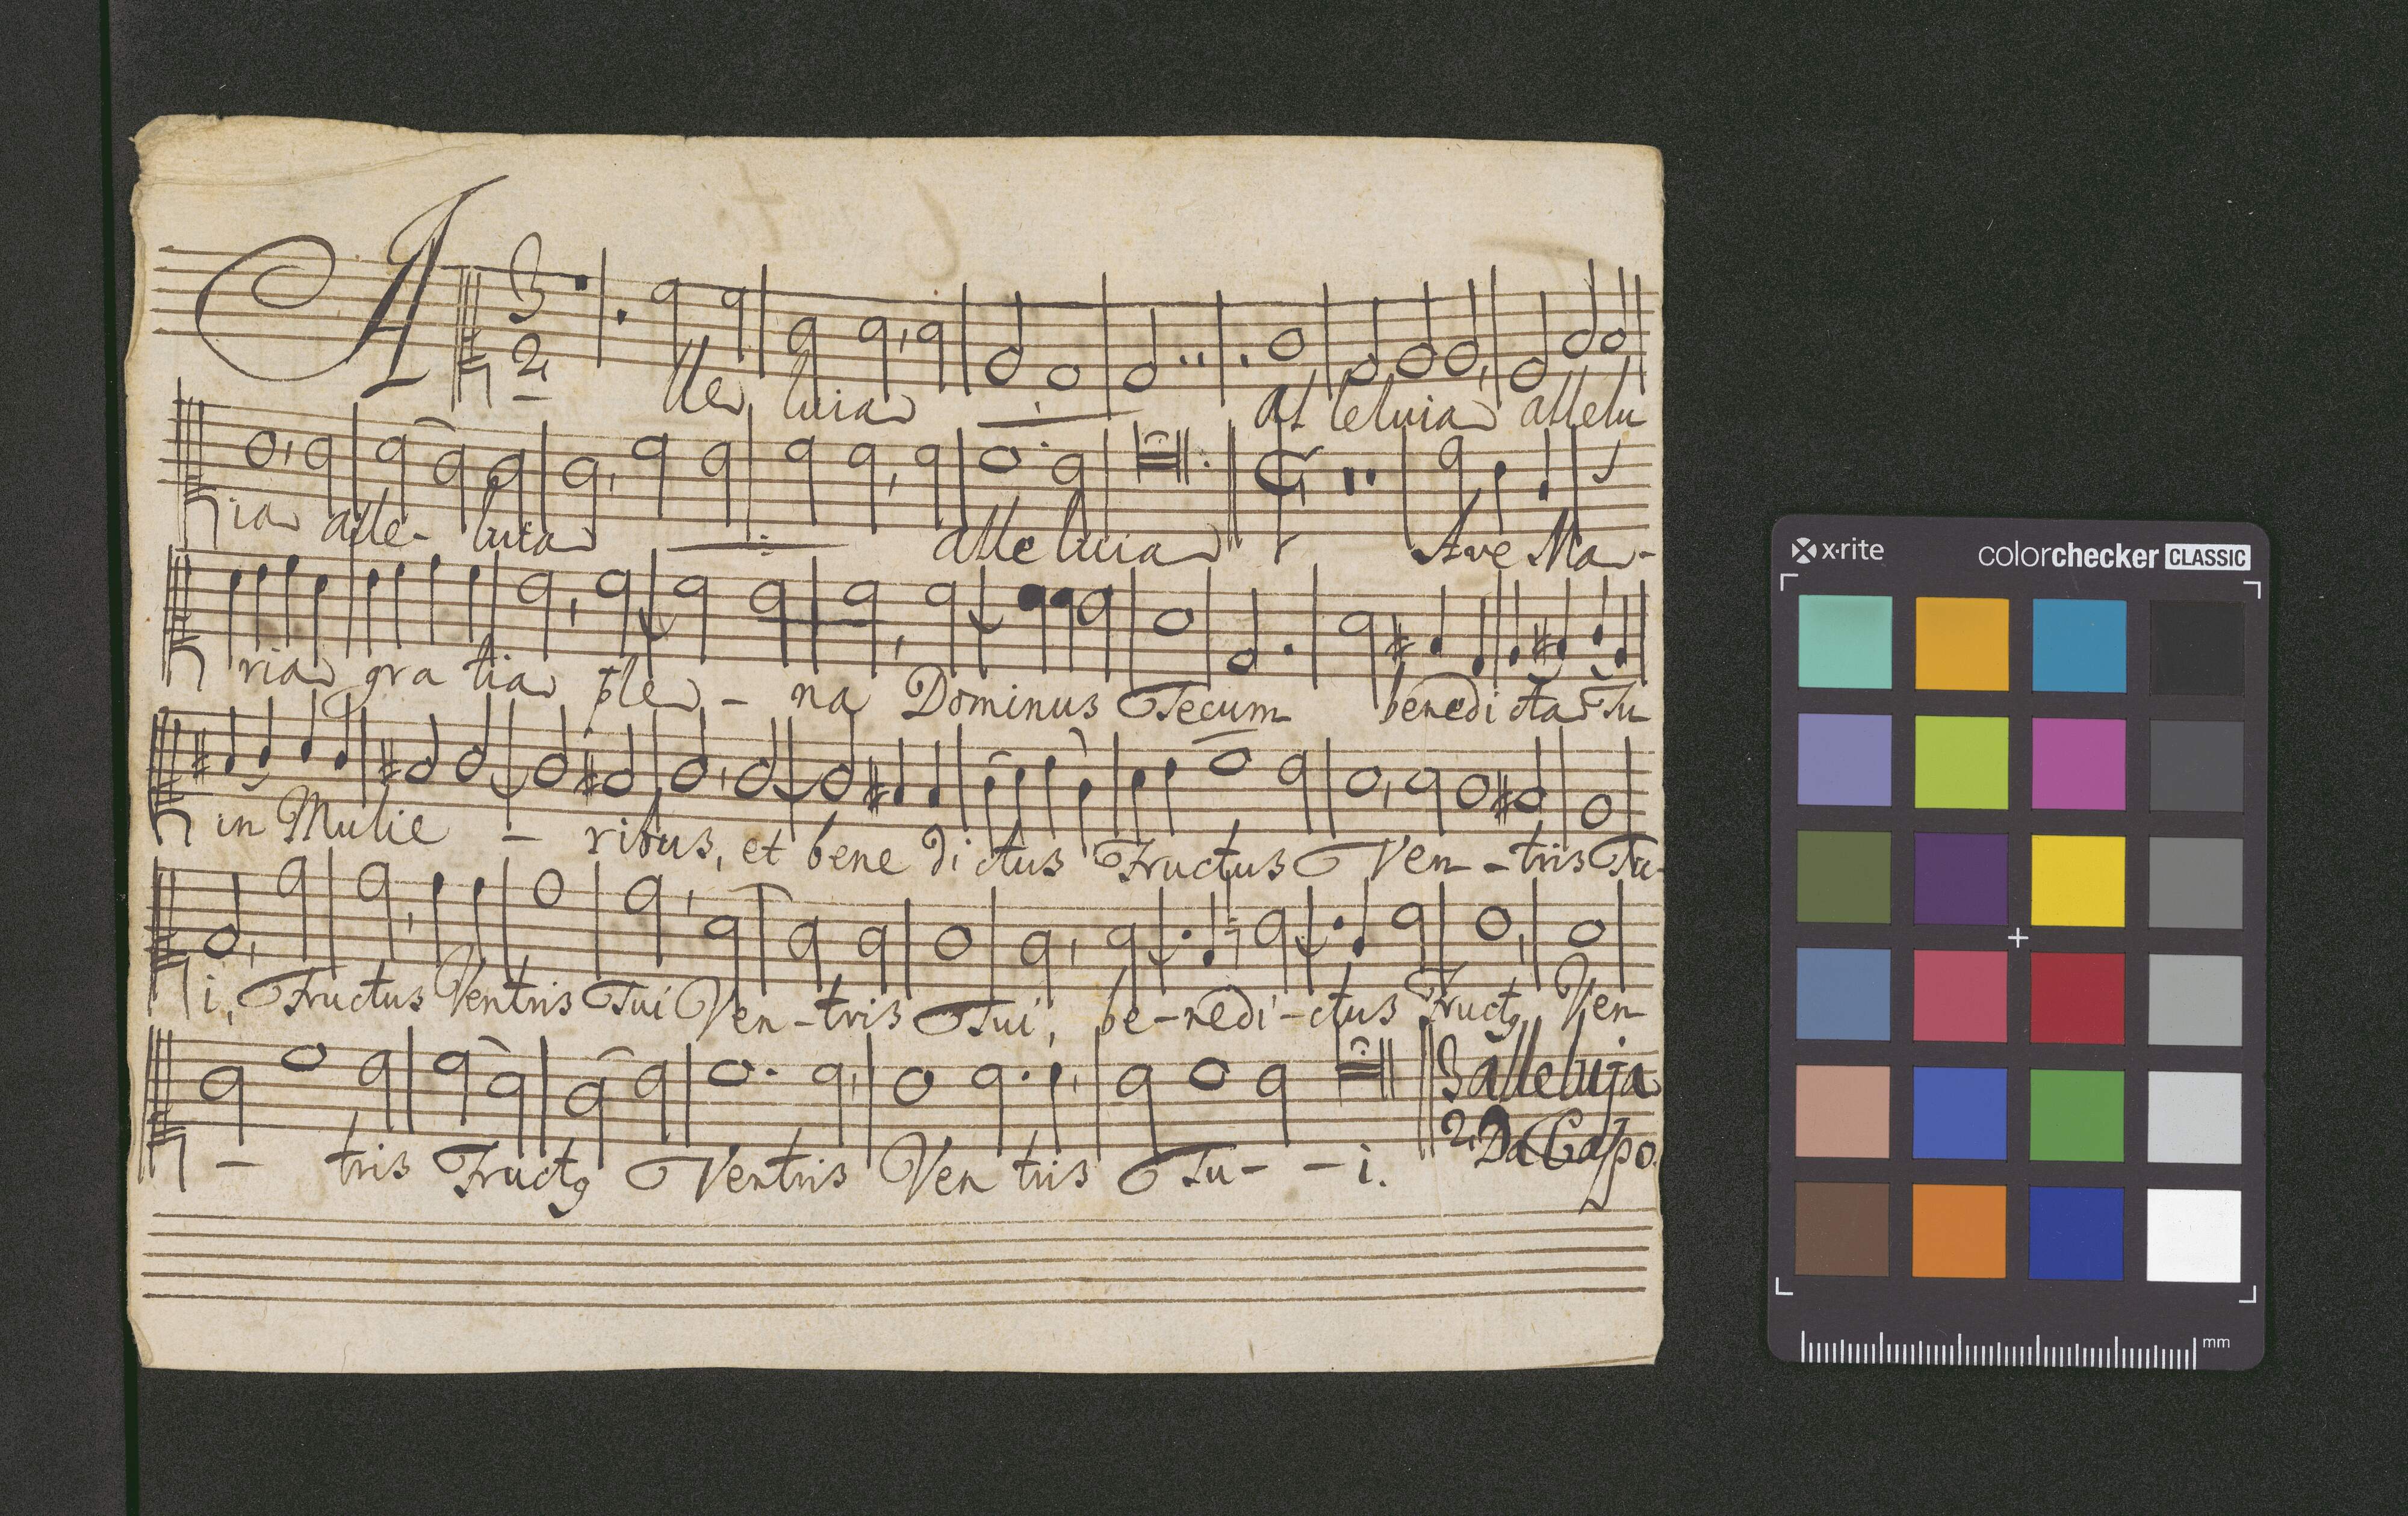 A lle luia alleluia allelu
ia alle- luia alleluia Ave Ma-
ria gra tia ple - na Dominus Tecum benedi cta Tu
in Mulie - ribus, et bene di ctus Fructus Ven - tris Tu-
i, Fructus Ventris Tui Ven - tris Tui, be - nedi - ctus Fructꝰ Ven
- tris Fructꝰ Ventris Ven tris Tu - - i.
3 alleluja
2 Da Capo.
x-rite
colorchecker CLASSIC
mm